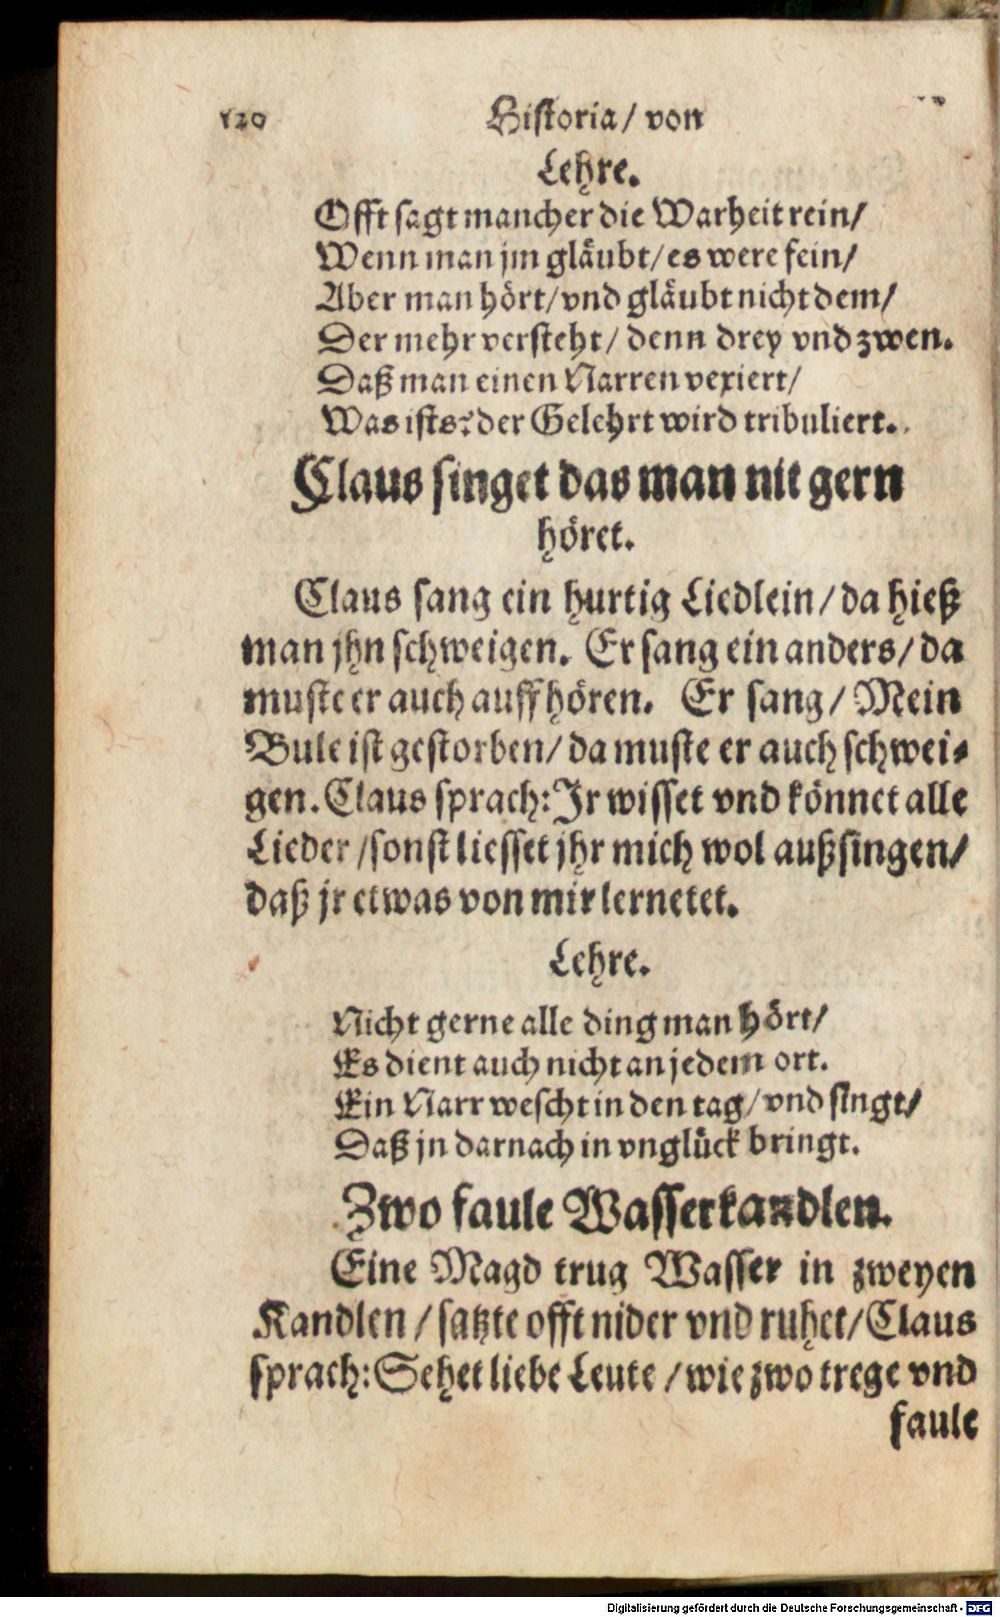 120 Historia/ von
Lehre.
Offt sagt mancher die Warheit rein/
Wenn man jm gläubt/ es were fein/
Aber man hört/ vnd gläubt nicht dem/
Der mehr versteht/ denn drey vnd zwen.
Daß man einen Narren vexiert/
Was ists? der Gelehrt wird tribuliert.
Claus singet das man nit gern
höret.
Claus sang ein hurtig Liedlein/ da hieß
man jhn schweigen. Er sang ein anders/ da
muste er auch auffhören. Er sang/ Mein
Bule ist gestorben/ da muste er auch schwei-
gen. Claus sprach: Jr wisset vnd könnet alle
Lieder/ sonst liesset jhr mich wol außsingen/
daß jr etwas von mir lernetet.
Lehre.
Nicht gerne alle ding man hört/
Es dient auch nicht an jedem ort.
Ein Narr wescht in den tag/ vnd singt/
Daß jn darnach in vnglück bringt.
Zwo faule Wasserkandlen.
Eine Magd trug Wasser in zweyen
Kandlen/ satzte offt nider vnd ruhet/ Claus
sprach: Sehet liebe Leute/ wie zwo trege vnd
faule
Digitalisierung gefördert durch die Deutsche Forschungsgemeinschaft - DFG